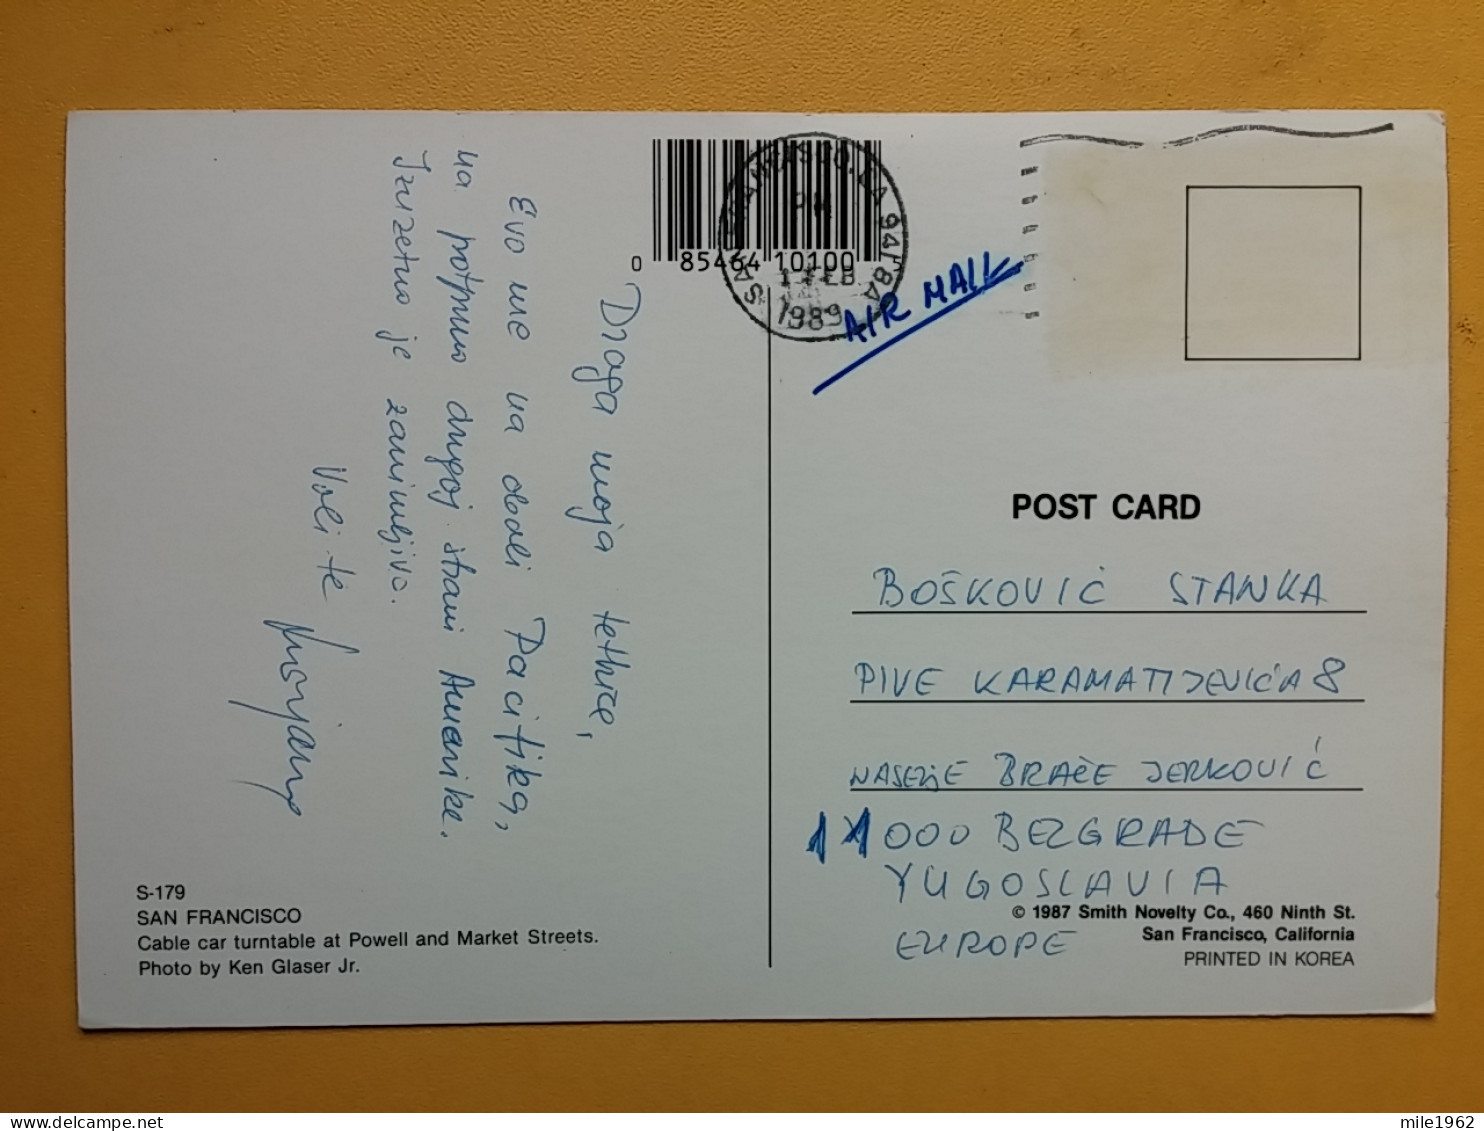 Draga moja tetkice,
Evo me na obali Pacifika,
na potpuno drugoj strani Amerike.
Izuzetno je zanimljivo.
Voli te
0 85464 10100
SAN FRANCISCO, CA 941
PM
1 FEB
1989
AIR MAIL
POST CARD
BOŠKOVIĆ STANKA
PIVE KARAMATIJEVIĆA 8
NASELJE BRAĆE JERKOVIĆ
11000 BEZGRADE
YUGOSLAVIA
EUROPE
S-179
SAN FRANCISCO
Cable car turntable at Powell and Market Streets.
Photo by Ken Glaser Jr.
© 1987 Smith Novelty Co., 460 Ninth St.
San Francisco, California
PRINTED IN KOREA
mile1962